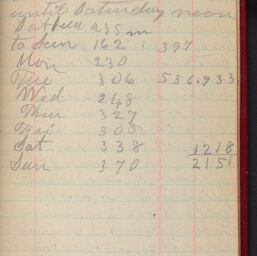 until Saturday noon
235 m
to Sun 162 397
Mon 230
Tue 306 536.933
Wed 248
Thur 327
Fri 305
Sat 338 1218
Sun 370 2151